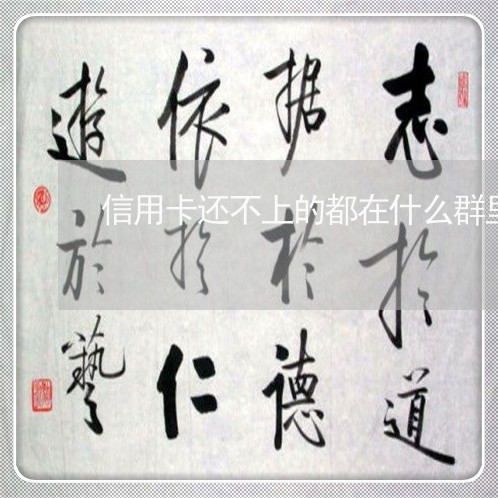 志於道
据於德
依於仁
遊於藝
信用卡还不上的都在什么群